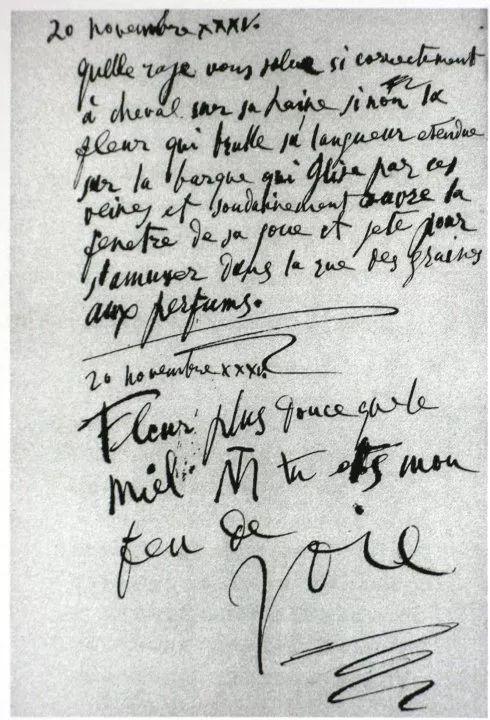 20 novembre XXXV.
quelle rage vous salue si correctement
à cheval sur sa haine sinon la
fleur qui brulle sa langueur etendue
sur la barque qui glisa par ces
veines et soudainement ouvre la
fenetre de sa joue et jete pour
s'amuser dans la rue des graines
aux perfums.
20 novembre XXXV.
Fleur plus douce que le
miel MT tu es mon
feu de
joie